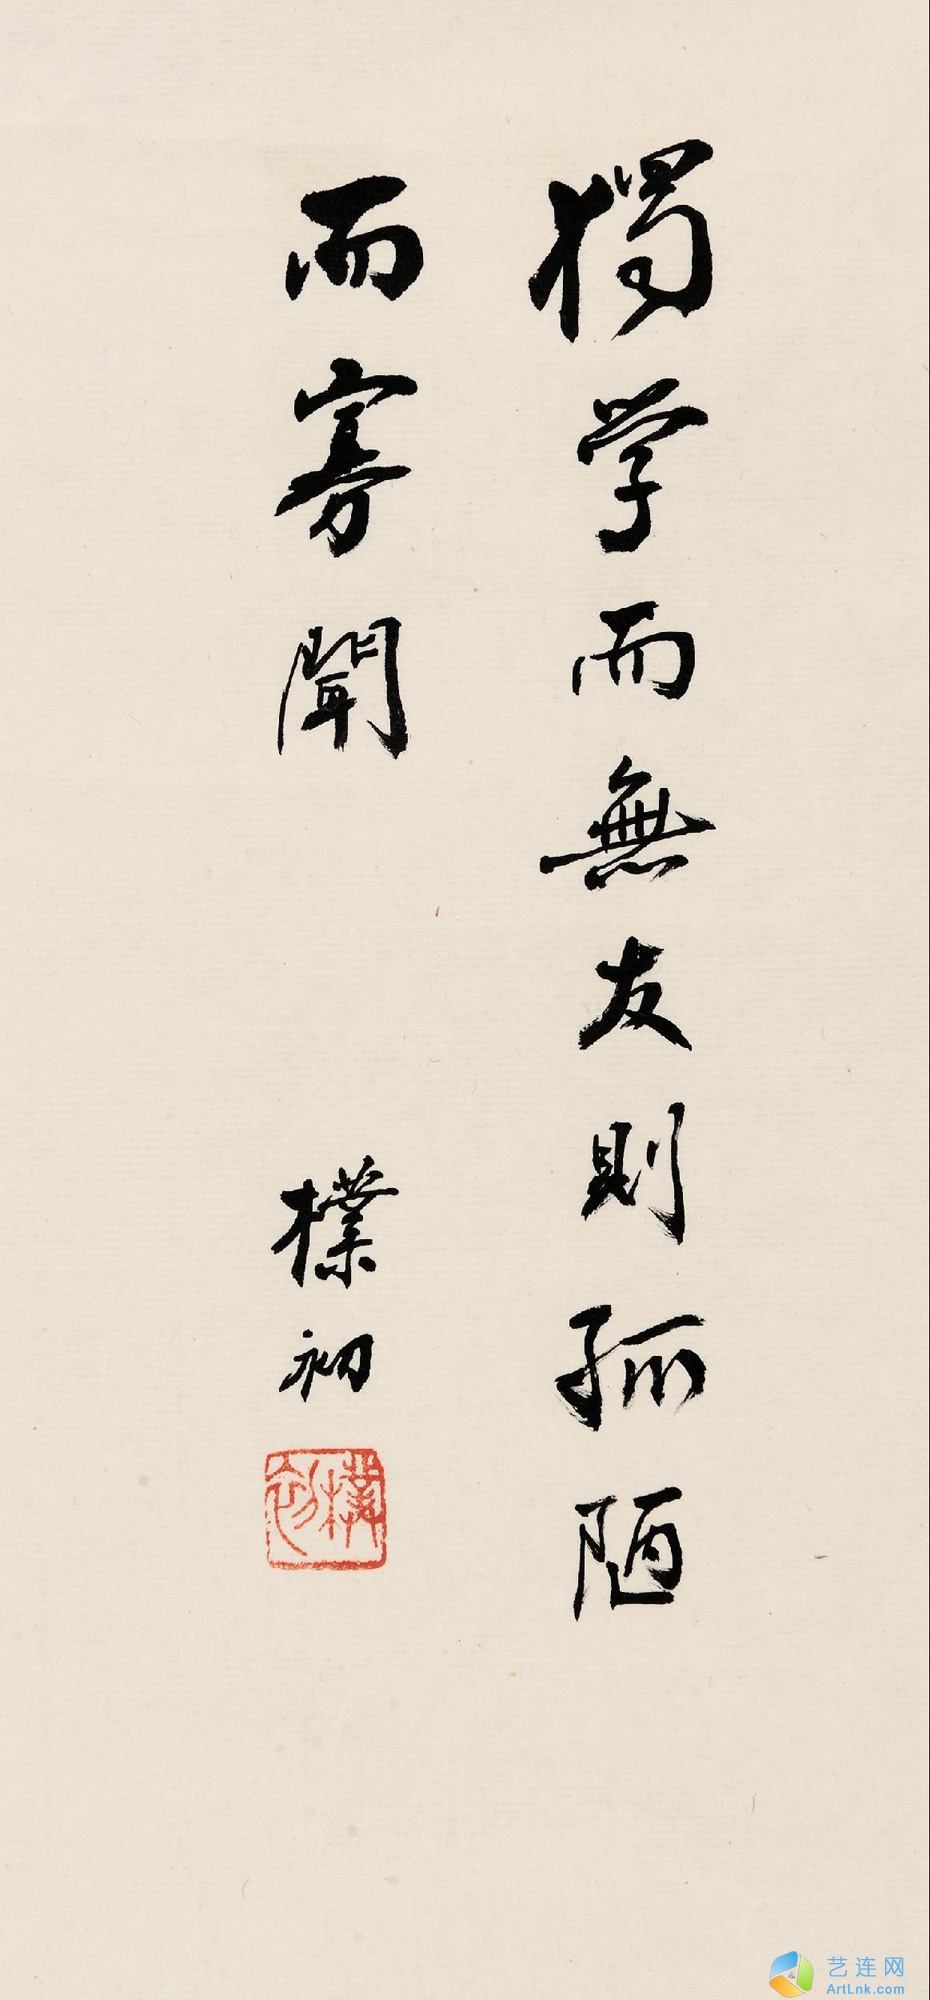 獨学而無友則孤陋
而寡聞
樸初
樸初
艺连网
ArtLnk.com